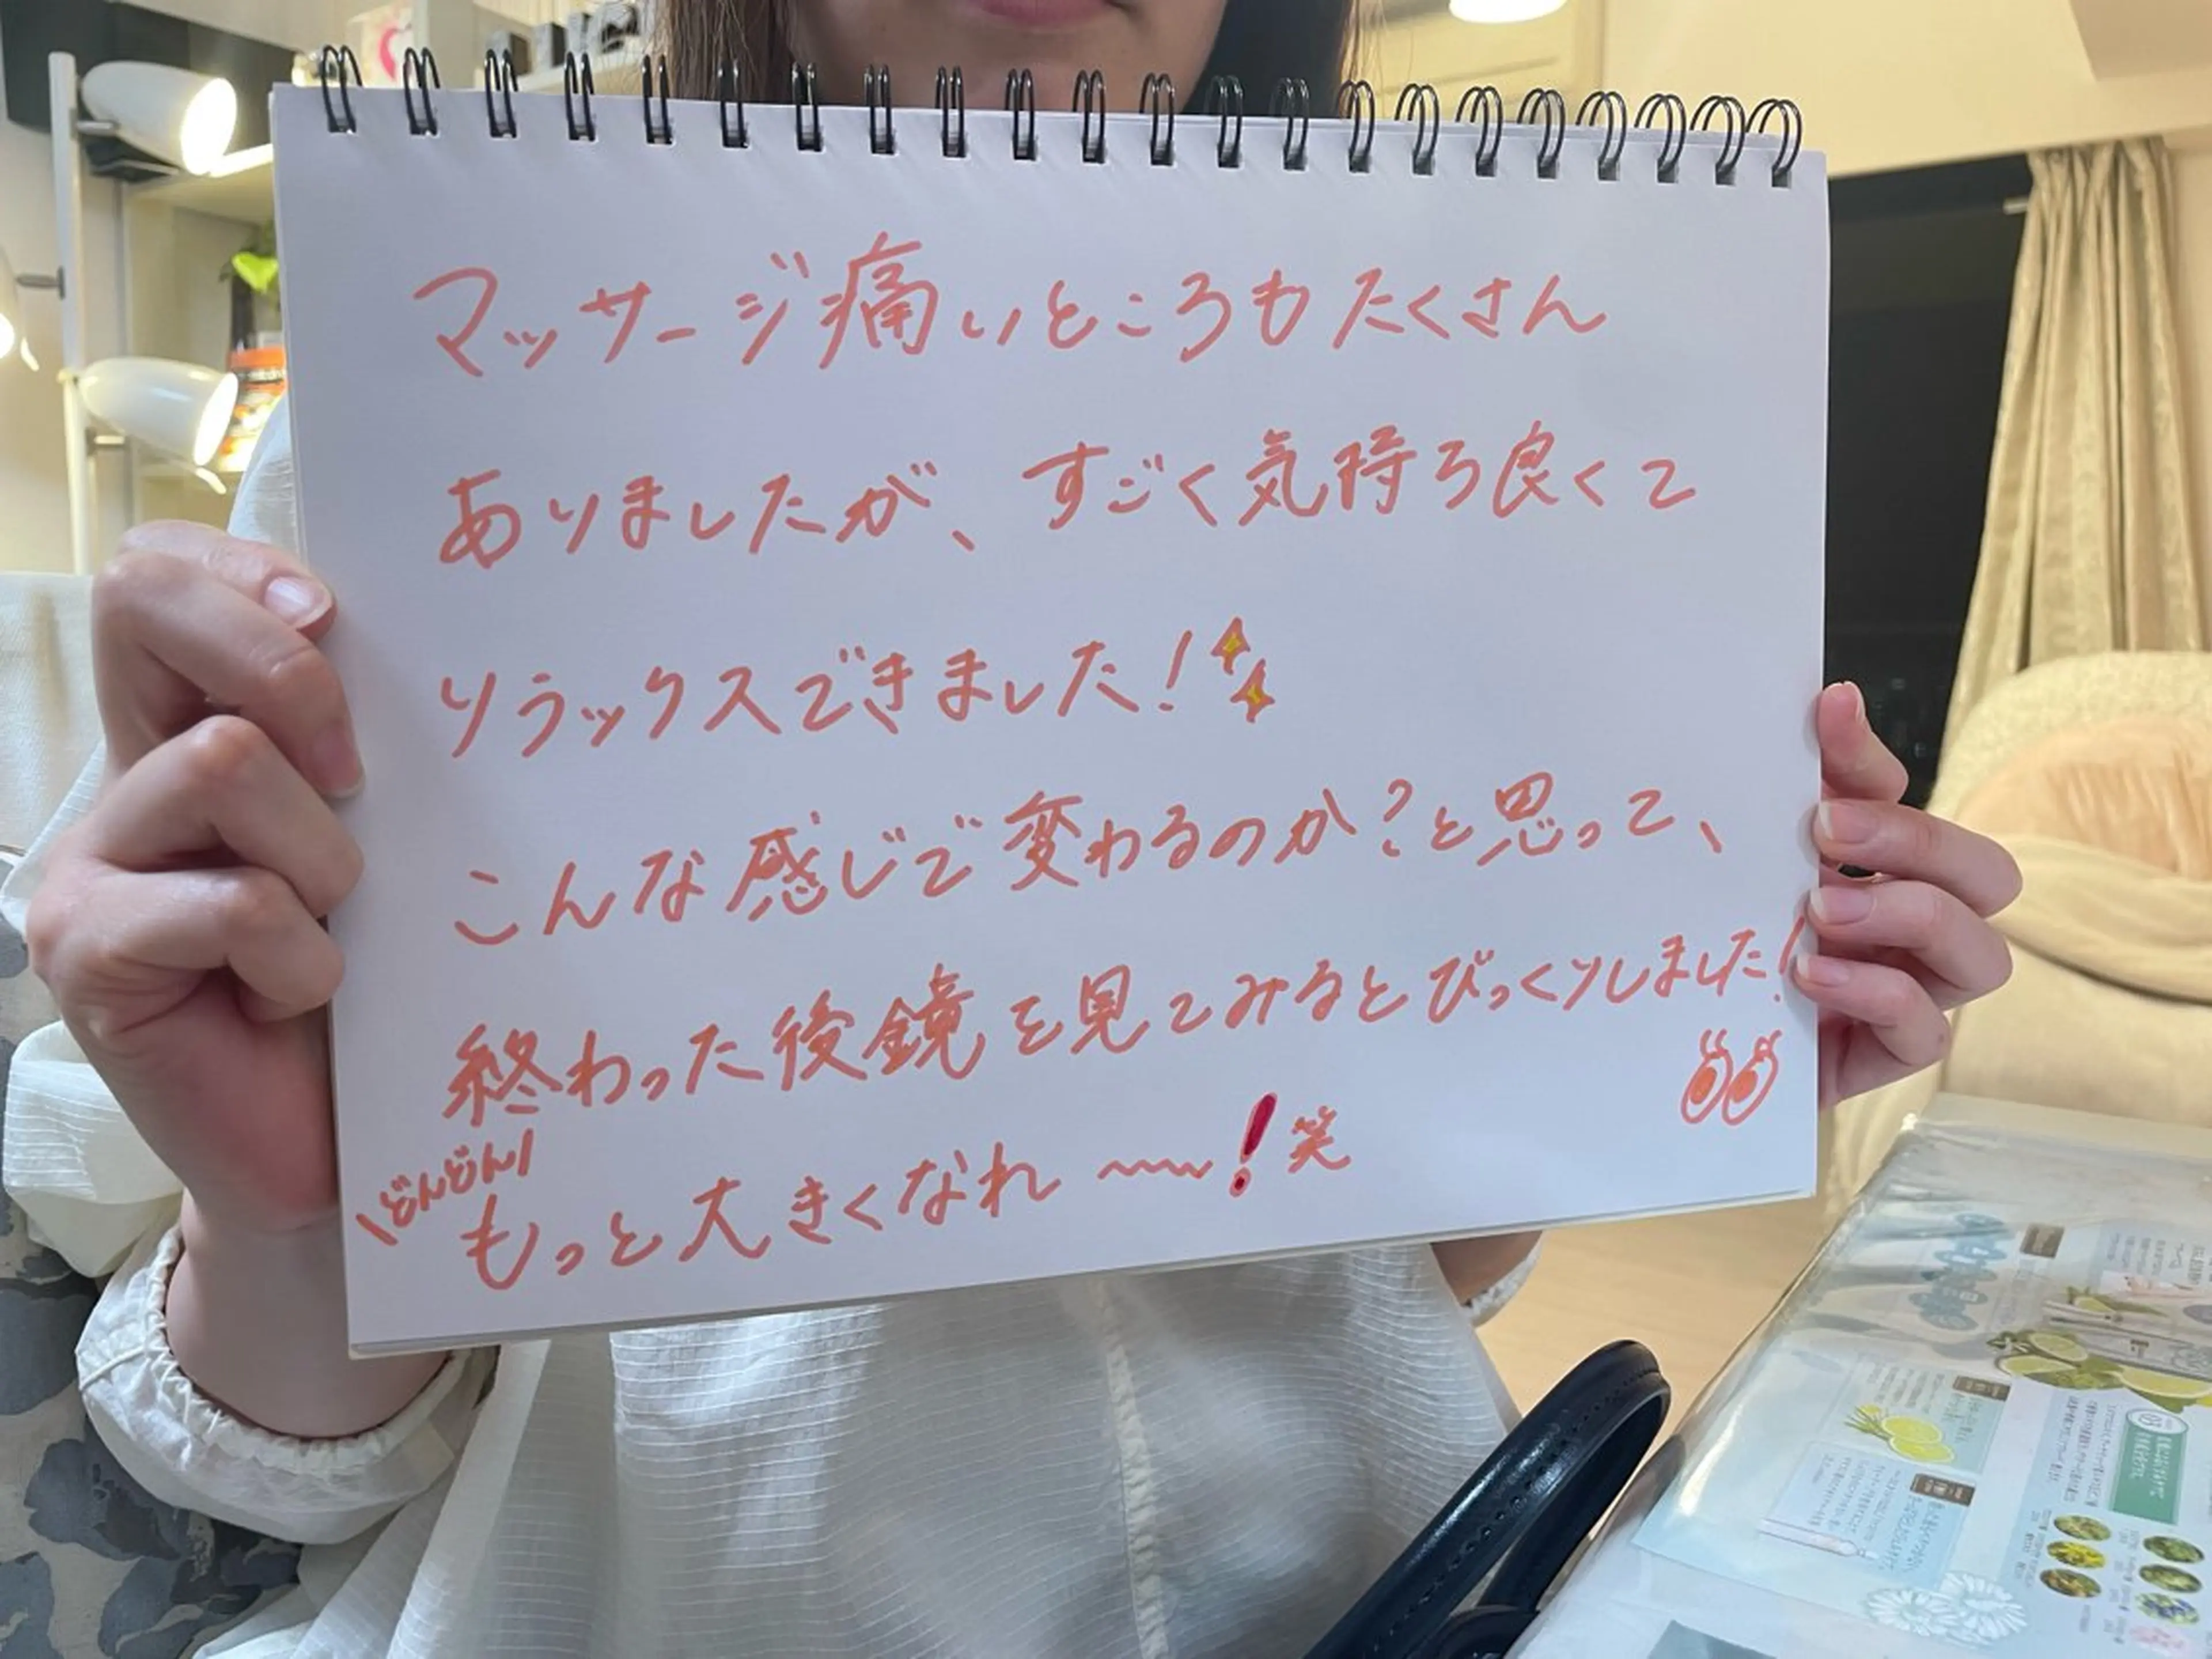 マッサージ痛いところもたくさん
ありましたが、すごく気持ち良くて
リラックスできました!
こんな感じで変わるのか?と思って、
終わった後鏡を見てみるとびっくりしました!
\どんどん/
もっと大きくなれ〜〜!笑